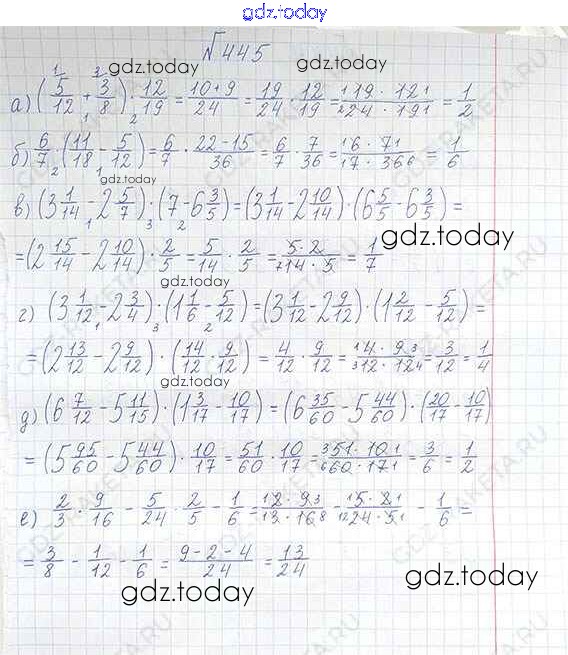 gdz.today
№445
gdz.today gdz.today
а) (5/12 + 3/8) · 12/19 = (10+9)/24 = 19/24 · 12/19 = (19 · 12)/(24 · 19) = 1/2
б) 6/7 · (11/18 - 5/12) = 6/7 · (22-15)/36 = 6/7 · 7/36 = (6 · 7)/(7 · 36) = 1/6
gdz.today
в) (3 1/14 - 2 5/7) · (7 - 6 3/5) = (3 1/14 - 2 10/14) · (6 5/5 - 6 3/5) =
gdz.today
= (2 15/14 - 2 10/14) · 2/5 = 5/14 · 2/5 = (5 · 2)/(14 · 5) = 1/7
gdz.today
г) (3 1/12 - 2 3/4) · (1 1/6 - 5/12) = (3 1/12 - 2 9/12) · (1 2/12 - 5/12) =
= (2 13/12 - 2 9/12) · (14/12 · 9/12) = 4/12 · 9/12 = (4 · 9)/(12 · 12) = 3/12 = 1/4
gdz.today
д) (6 7/12 - 5 11/15) · (1 3/17 - 10/17) = (6 35/60 - 5 44/60) · (20/17 - 10/17)
= (5 95/60 - 5 44/60) · 10/17 = 51/60 · 10/17 = (51 · 10)/(60 · 17) = 3/6 = 1/2
е) 2/3 · 9/16 - 5/24 · 2/5 - 1/6 = (2 · 9)/(3 · 16) - (5 · 2)/(24 · 5) - 1/6 =
= 3/8 - 1/12 - 1/6 = (9-2-4)/24 = 13/24
gdz.today gdz.today